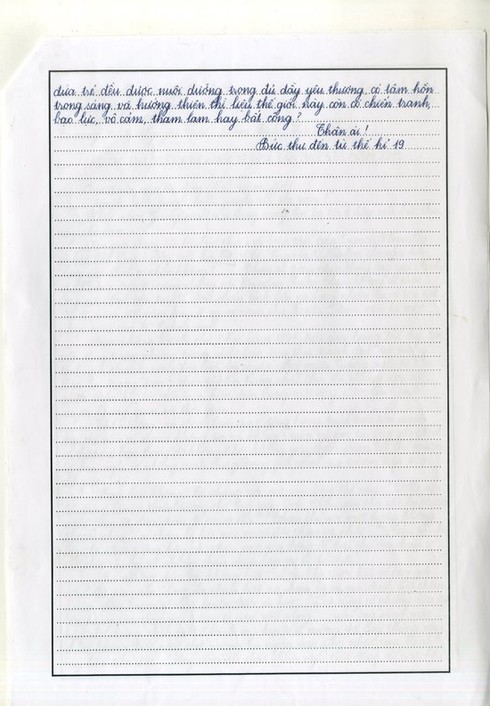 đứa trẻ đều được nuôi dưỡng trong đủ đầy yêu thương, có tâm hồn
trong sáng và hướng thiện thì liệu thế giới này còn có chiến tranh,
bạo lực, vô cảm, tham lam hay bất công?
Thân ái!
Bức thư đến từ thế kỉ 19